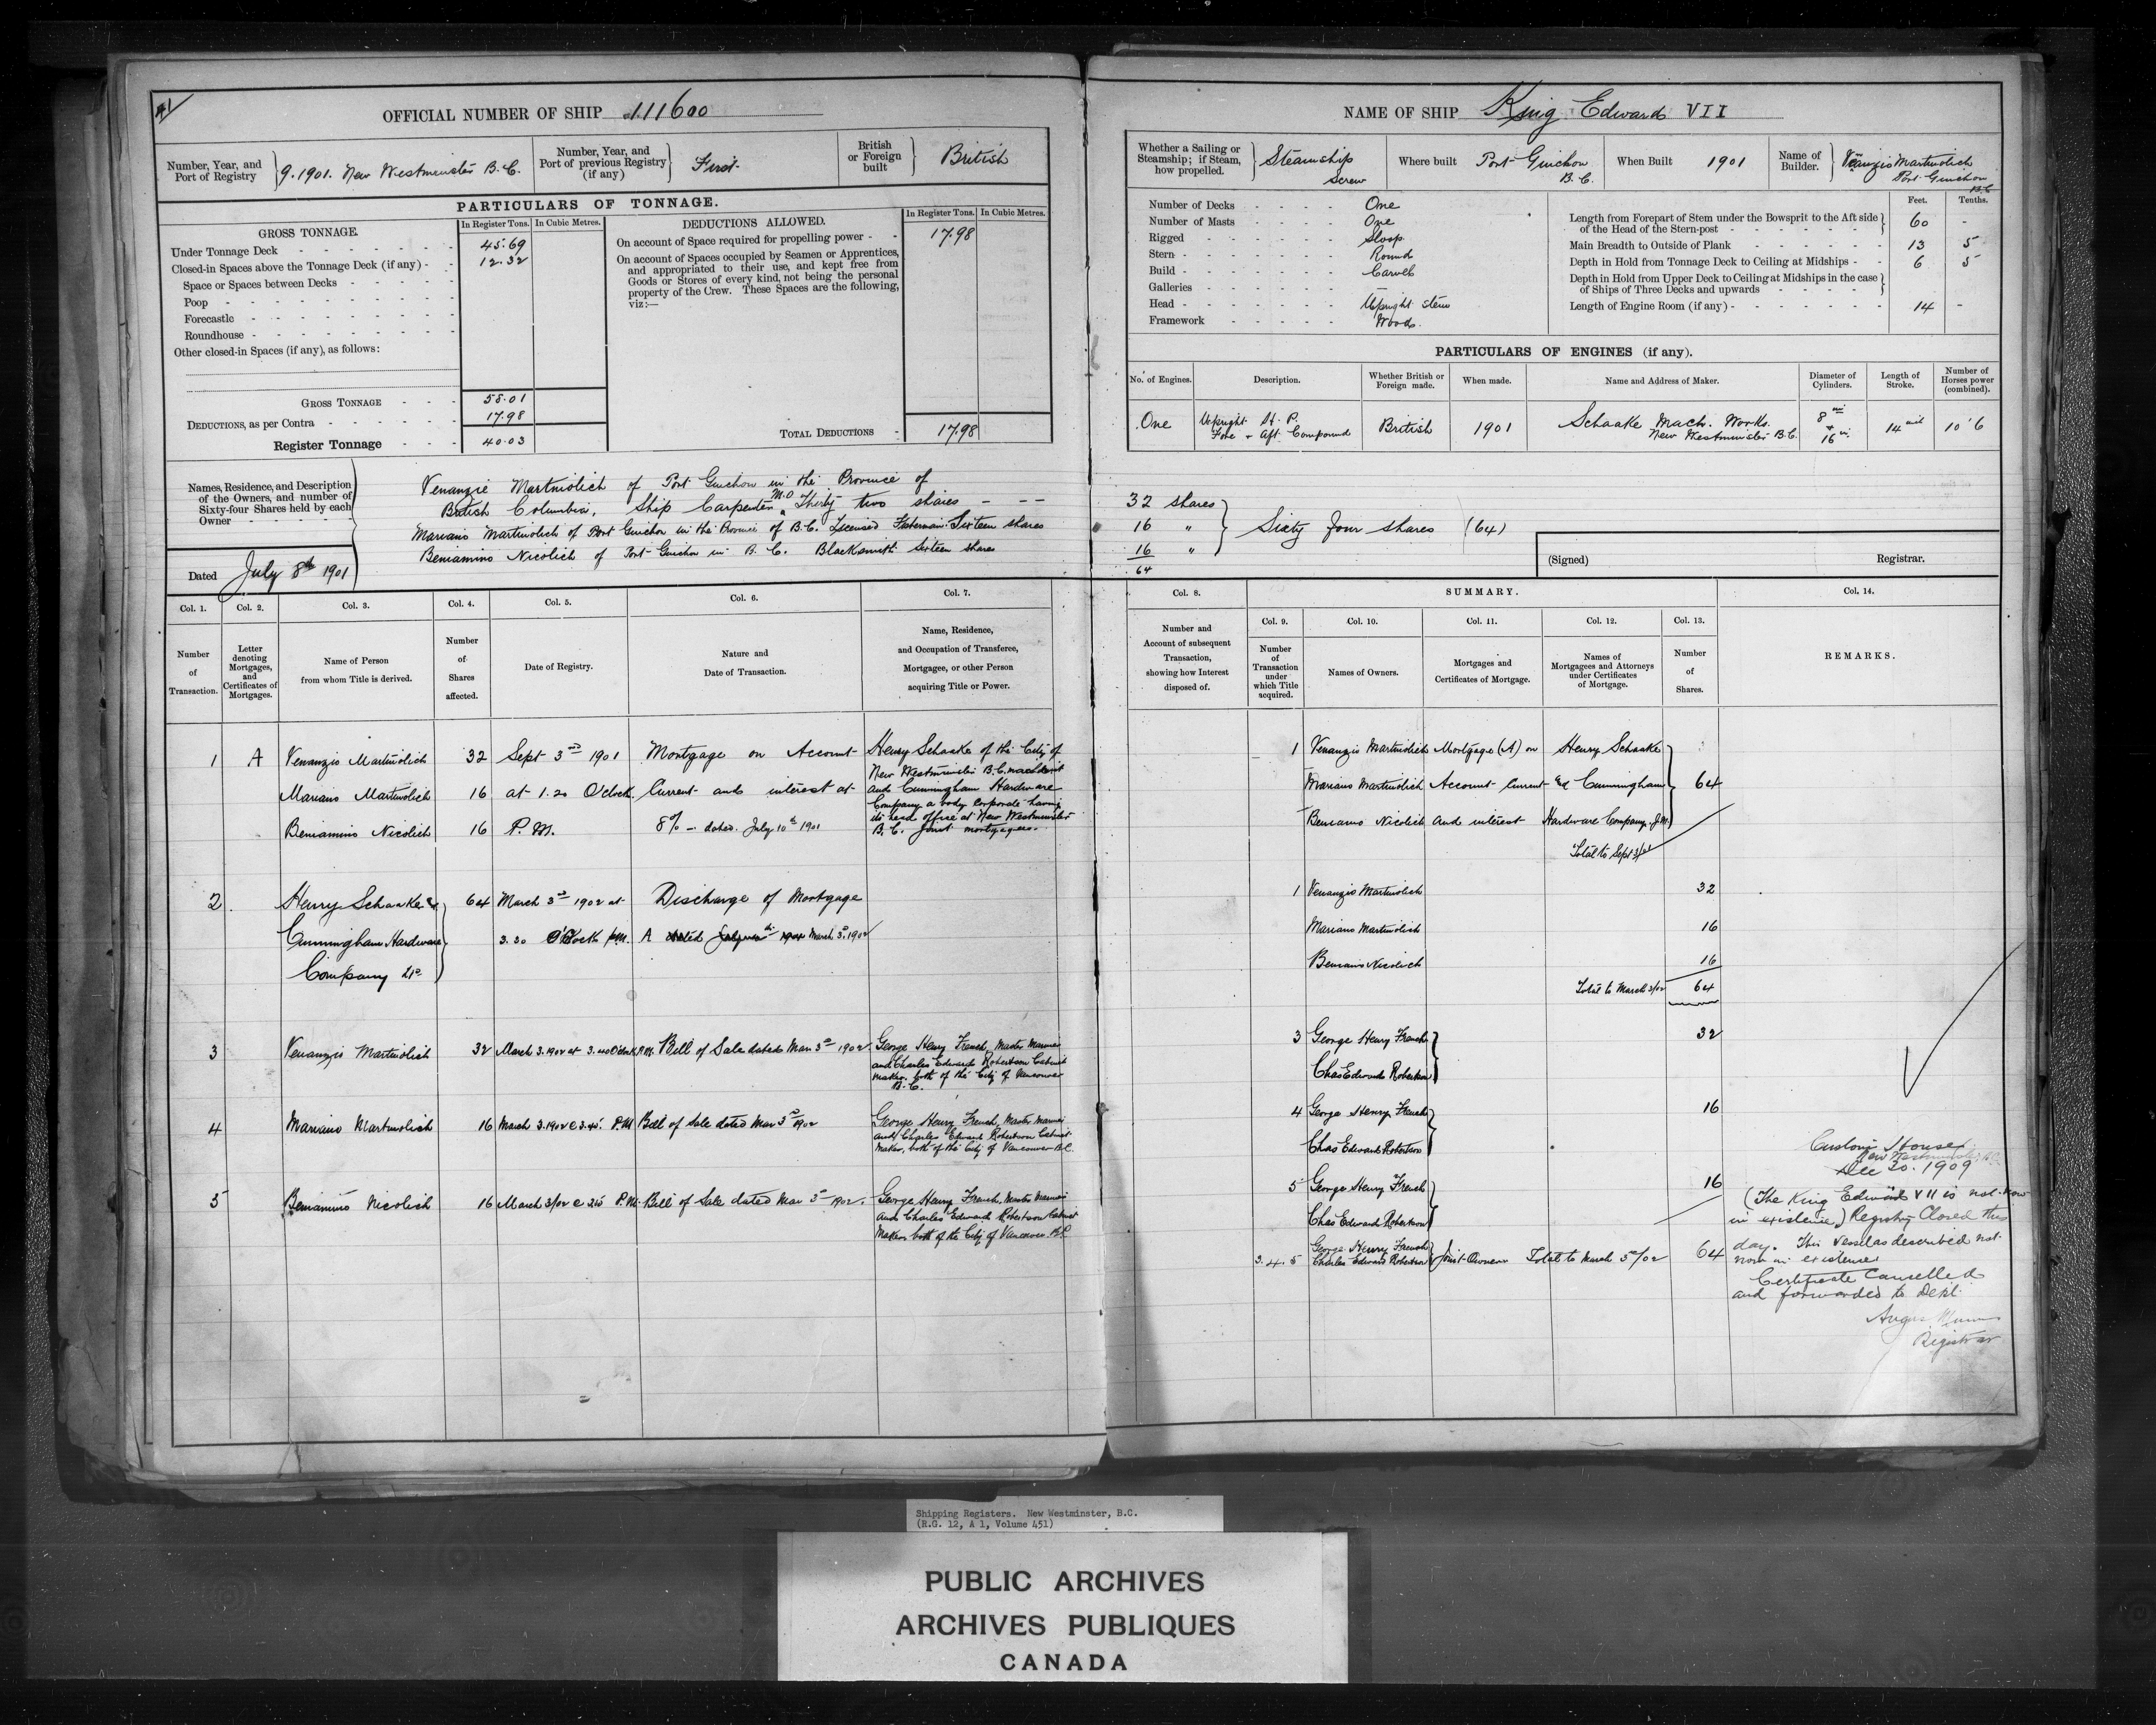 41
OFFICIAL NUMBER OF SHIP 111600
Number, Year, and Port of Registry } 9. 1901. New Westminster B.C.
Number, Year, and Port of previous Registry (if any) } First
British or Foreign built } British
PARTICULARS OF TONNAGE.
GROSS TONNAGE. In Register Tons. In Cubic Metres.
Under Tonnage Deck - - - 45.69
Closed-in Spaces above the Tonnage Deck (if any) - 12.32
Space or Spaces between Decks
Poop
Forecastle
Roundhouse
Other closed-in Spaces (if any), as follows:
GROSS TONNAGE 58.01
DEDUCTIONS, as per Contra 17.98
Register Tonnage 40.03
DEDUCTIONS ALLOWED. In Register Tons. In Cubic Metres.
On account of Space required for propelling power - 17.98
On account of Spaces occupied by Seamen or Apprentices,
and appropriated to their use, and kept free from
Goods or Stores of every kind, not being the personal
property of the Crew. These Spaces are the following,
viz:—
TOTAL DEDUCTIONS - 17.98
Names, Residence, and Description
of the Owners, and number of
Sixty-four Shares held by each
Owner
Dated July 8th 1901
Venanzie Martinolich of Port Guichon in the Province of
British Columbia, Ship Carpenter M.O. Thirty two shares - - -
Mariano Martinolich of Port Guichon in the Province of B.C. Licensed Fisherman. Sixteen shares
Beniamino Nicolich of Port Guichon in B.C. Blacksmith Sixteen shares
Col. 1. Col. 2. Col. 3. Col. 4. Col. 5. Col. 6. Col. 7.
Number of Transaction.
Letter denoting Mortgages, and Certificates of Mortgages.
Name of Person from whom Title is derived.
Number of Shares affected.
Date of Registry.
Nature and Date of Transaction.
Name, Residence, and Occupation of Transferee, Mortgagee, or other Person acquiring Title or Power.
1 A Venanzio Martinolich 32 Sept 3rd 1901 Mortgage on Account Henry Schaake of the City of
New Westminster B.C. machinist
Mariano Martinolich 16 at 1.20 O'clock Current and interest at and Cunningham Hardware
Company a body corporate having
its head office at New Westminster
Beniamino Nicolich 16 P.M. 8% - dated July 10th 1901 B.C. joint mortgagees.
2 Henry Schaake & 64 March 3rd 1902 at Discharge of Mortgage
Cunningham Hardware 3.30 O'Clock P.M. A dated March 3rd 1902
Company Ld
3 Venanzio Martinolich 32 March 3. 1902 at 3.40 O'clock P.M. Bill of Sale dated Mar 3rd 1902 George Henry French, Master Mariner
and Charles Edward Robertson Cabinet
maker, both of the City of Vancouver
B.C.
4 Mariano Martinolich 16 March 3. 1902 @ 3.45 P.M Bill of Sale dated Mar 3rd 1902 George Henry French, Master Mariner
and Charles Edward Robertson Cabinet
Maker, both of the City of Vancouver B.C.
5 Beniamino Nicolich 16 March 3/02 @ P.M. Bill of Sale dated Mar 3rd 1902. George Henry French, Master Mariner
and Charles Edward Robertson Cabinet
Maker both of the City of Vancouver. B.C.
NAME OF SHIP King Edward VII
Whether a Sailing or Steamship; if Steam, how propelled. } Steamship Screw
Where built Port Guichon B.C.
When Built 1901
Name of Builder. } Venanzio Martinolich Port Guichon B.C.
Number of Decks - One
Number of Masts - One
Rigged - Sloop
Stern - Round
Build - Carvel
Galleries - —
Head - Upright Stem
Framework - Wood.
Feet. Tenths.
Length from Forepart of Stem under the Bowsprit to the Aft side of the Head of the Stern-post } 60 -
Main Breadth to Outside of Plank 13 5
Depth in Hold from Tonnage Deck to Ceiling at Midships - 6 5
Depth in Hold from Upper Deck to Ceiling at Midships in the case of Ships of Three Decks and upwards }
Length of Engine Room (if any) - 14 -
PARTICULARS OF ENGINES (if any).
No. of Engines. Description. Whether British or Foreign made. When made. Name and Address of Maker. Diameter of Cylinders. Length of Stroke. Number of Horses power (combined).
One Upright H.P. Fore & Aft Compound British 1901 Schaake Mach. Works. New Westminster B.C. 8 & 16 in. 14 10'6
32 shares
16 "
16 "
64
Sixty four shares (64)
(Signed) Registrar.
Col. 8. SUMMARY. Col. 14.
Col. 9. Col. 10. Col. 11. Col. 12. Col. 13.
Number and Account of subsequent Transaction, showing how Interest disposed of.
Number of Transaction under which Title acquired.
Names of Owners.
Mortgages and Certificates of Mortgage.
Names of Mortgagees and Attorneys under Certificates of Mortgage.
Number of Shares.
REMARKS.
1 Venanzio Martinolich Mortgage (A) on Henry Schaake
Mariano Martinolich Account Current & Cunningham 64
Beniamo Nicolich and interest Hardware Company, J.M.
Total to Sept 3/01
1 Venanzio Martinolich 32
Mariano Martinolich 16
Beniamo Nicolich 16
Total to March 3/02 64
3 George Henry French 32
Chas Edward Robertson
4 George Henry French 16
Chas Edward Robertson
5 George Henry French 16
Chas Edward Robertson
3. 4. 5 George Henry French
Charles Edward Robertson } Joint Owners Total to March 3rd/02 64
Custom House
New Westminster B.C.
Dec 30. 1909
(The King Edward VII is not now
in existence) Registry Closed this
day. This Vessel as described not
now in existence
Certificate Cancelled
and forwarded to Dept.
Angus
Registrar
Shipping Registers. New Westminster, B.C.
(R.G. 12, A 1, Volume 451)
PUBLIC ARCHIVES
ARCHIVES PUBLIQUES
CANADA